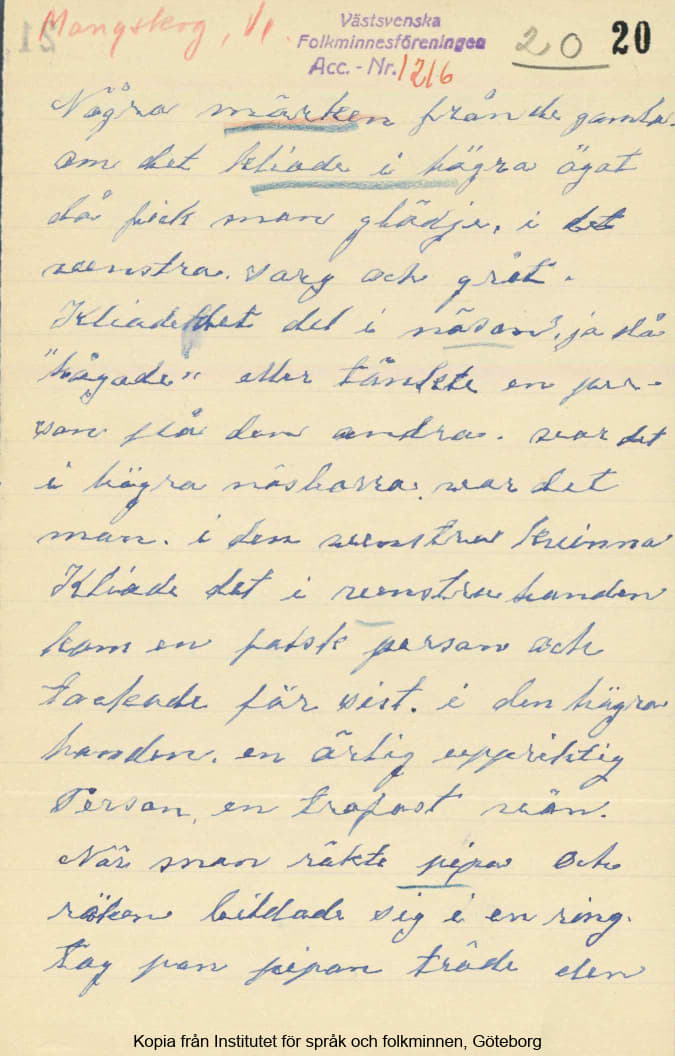 Mangskog, Vl.
Västsvenska
Folkminnesföreningen
Acc. - Nr. 1216
20 20
Några märken från de gamla.
om det kliade i högra ögat
då fick man glädje, i det
venstra. sorg och gråt.
Kliade det det i näsan, ja då
"hågade" eller tänkte en per-
son på den andra. var det
i högra näsborra. var det
man. i den venstra kvinna
Kliade det i venstra handen
kom en falsk person och
tackade för sist. i den högra
handen. en ärlig uppriktig
Person, en trofast vän.
När man rökte pipa och
röken bildade sig i en ring.
tog pan pipan trädde den
Kopia från Institutet för språk och folkminnen, Göteborg